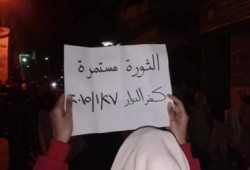 الثورة مستمرة
كفر الدوار ٢٠١٥/١/٢٧